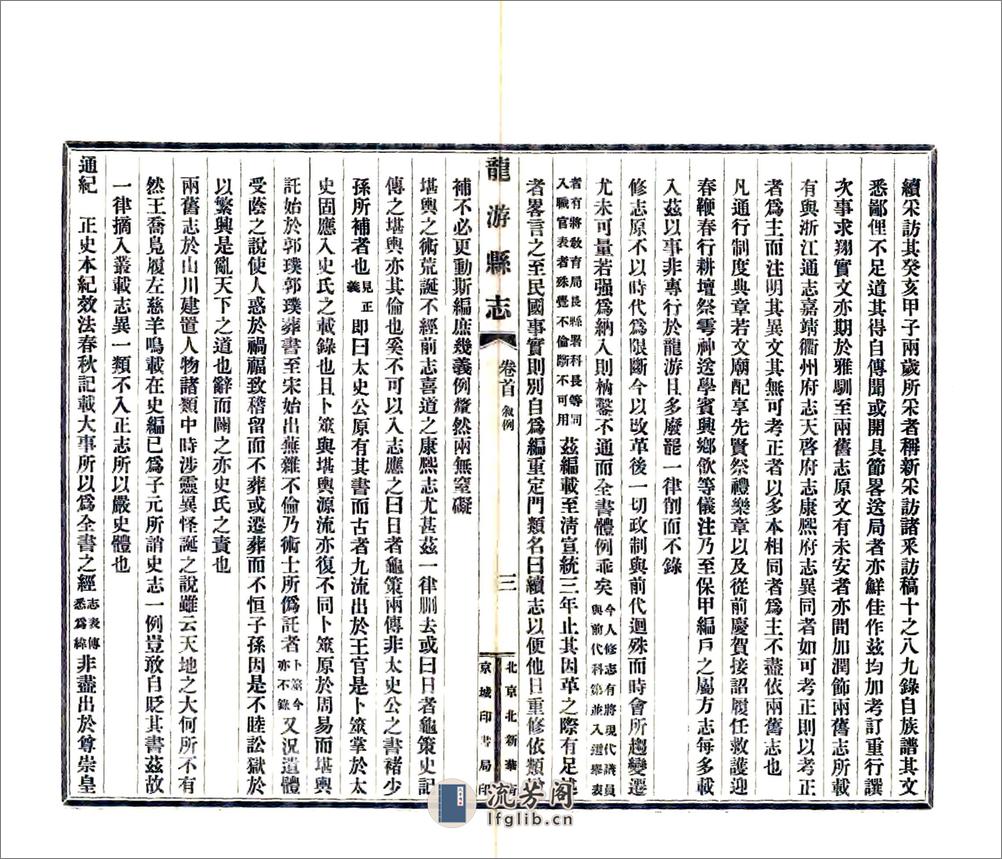 續采訪其癸亥甲子兩歲所采者稱新采訪諸采訪稿十之八九錄自族譜其文
悉鄙俚不足道其得自傳聞或開具節畧送局者亦鮮佳作茲均加考訂重行譔
次事求翔實文亦期於雅馴至兩舊志原文有未安者亦間加潤飾兩舊志所載
有與浙江通志嘉靖衢州府志天啓府志康熙府志異同者如可考正則以考正
者為主而注明其異文其無可考正者以多本相同者為主不盡依兩舊志也
凡通行制度典章若文廟配享先賢祭禮樂章以及從前慶賀接詔履任救護迎
春鞭春行耕壇祭雩神送學賓興鄉飲等儀注乃至保甲編戶之屬方志每多載
入茲以事非專行於龍游且多廢罷一律削而不錄
修志原不以時代為限斷今以改革後一切政制與前代迴殊而時會所趨變遷
尤未可量若强為納入則枘鑿不通而全書體例乖矣今人修志有將現代議員與前代科第並入選舉表
者有將教育局長縣署科長等同入職官表者殊覺不倫斷不可用茲編載至清宣統三年止其因革之際有足述
者畧言之至民國事實則別自為編重定門類名曰續志以便他日重修依類
補不必更動斯編庶幾義例燈然兩無窒礙
堪輿之術荒誕不經前志喜道之康熙志尤甚茲一律刪去或曰日者龜策史記
傳之堪輿亦其倫也奚不可以入志應之曰日者龜策兩傳非太史公之書褚少
孫所補者也見正義即曰太史公原有其書而古者九流出於王官是卜筮掌於太
史固應入史氏之載錄也且卜筮與堪輿源流亦復不同卜筮原於周易而堪輿
託始於郭璞郭璞葬書至宋始出蕪雜不倫乃術士所偽託者卜筮今亦不錄又況遺體
受蔭之說使人惑於禍福致稽留而不葬或遷葬而不恒子孫因是不睦訟獄於
以繁興是亂天下之道也辭而闢之亦史氏之責也
兩舊志於山川建置人物諸類中時涉靈異怪誕之說雖云天地之大何所不有
然王喬鳧履左慈羊鳴載在史編已為子元所誚史志一例豈敢自貶其書茲故
一律摘入叢載志異一類不入正志所以嚴史體也
通紀 正史本紀效法春秋記載大事所以為全書之經志表傳悉為緯非盡出於尊崇皇
龍游縣志
卷首 敘例
三
北京北新華街
京城印書局印
流芳阁
lfglib.cn